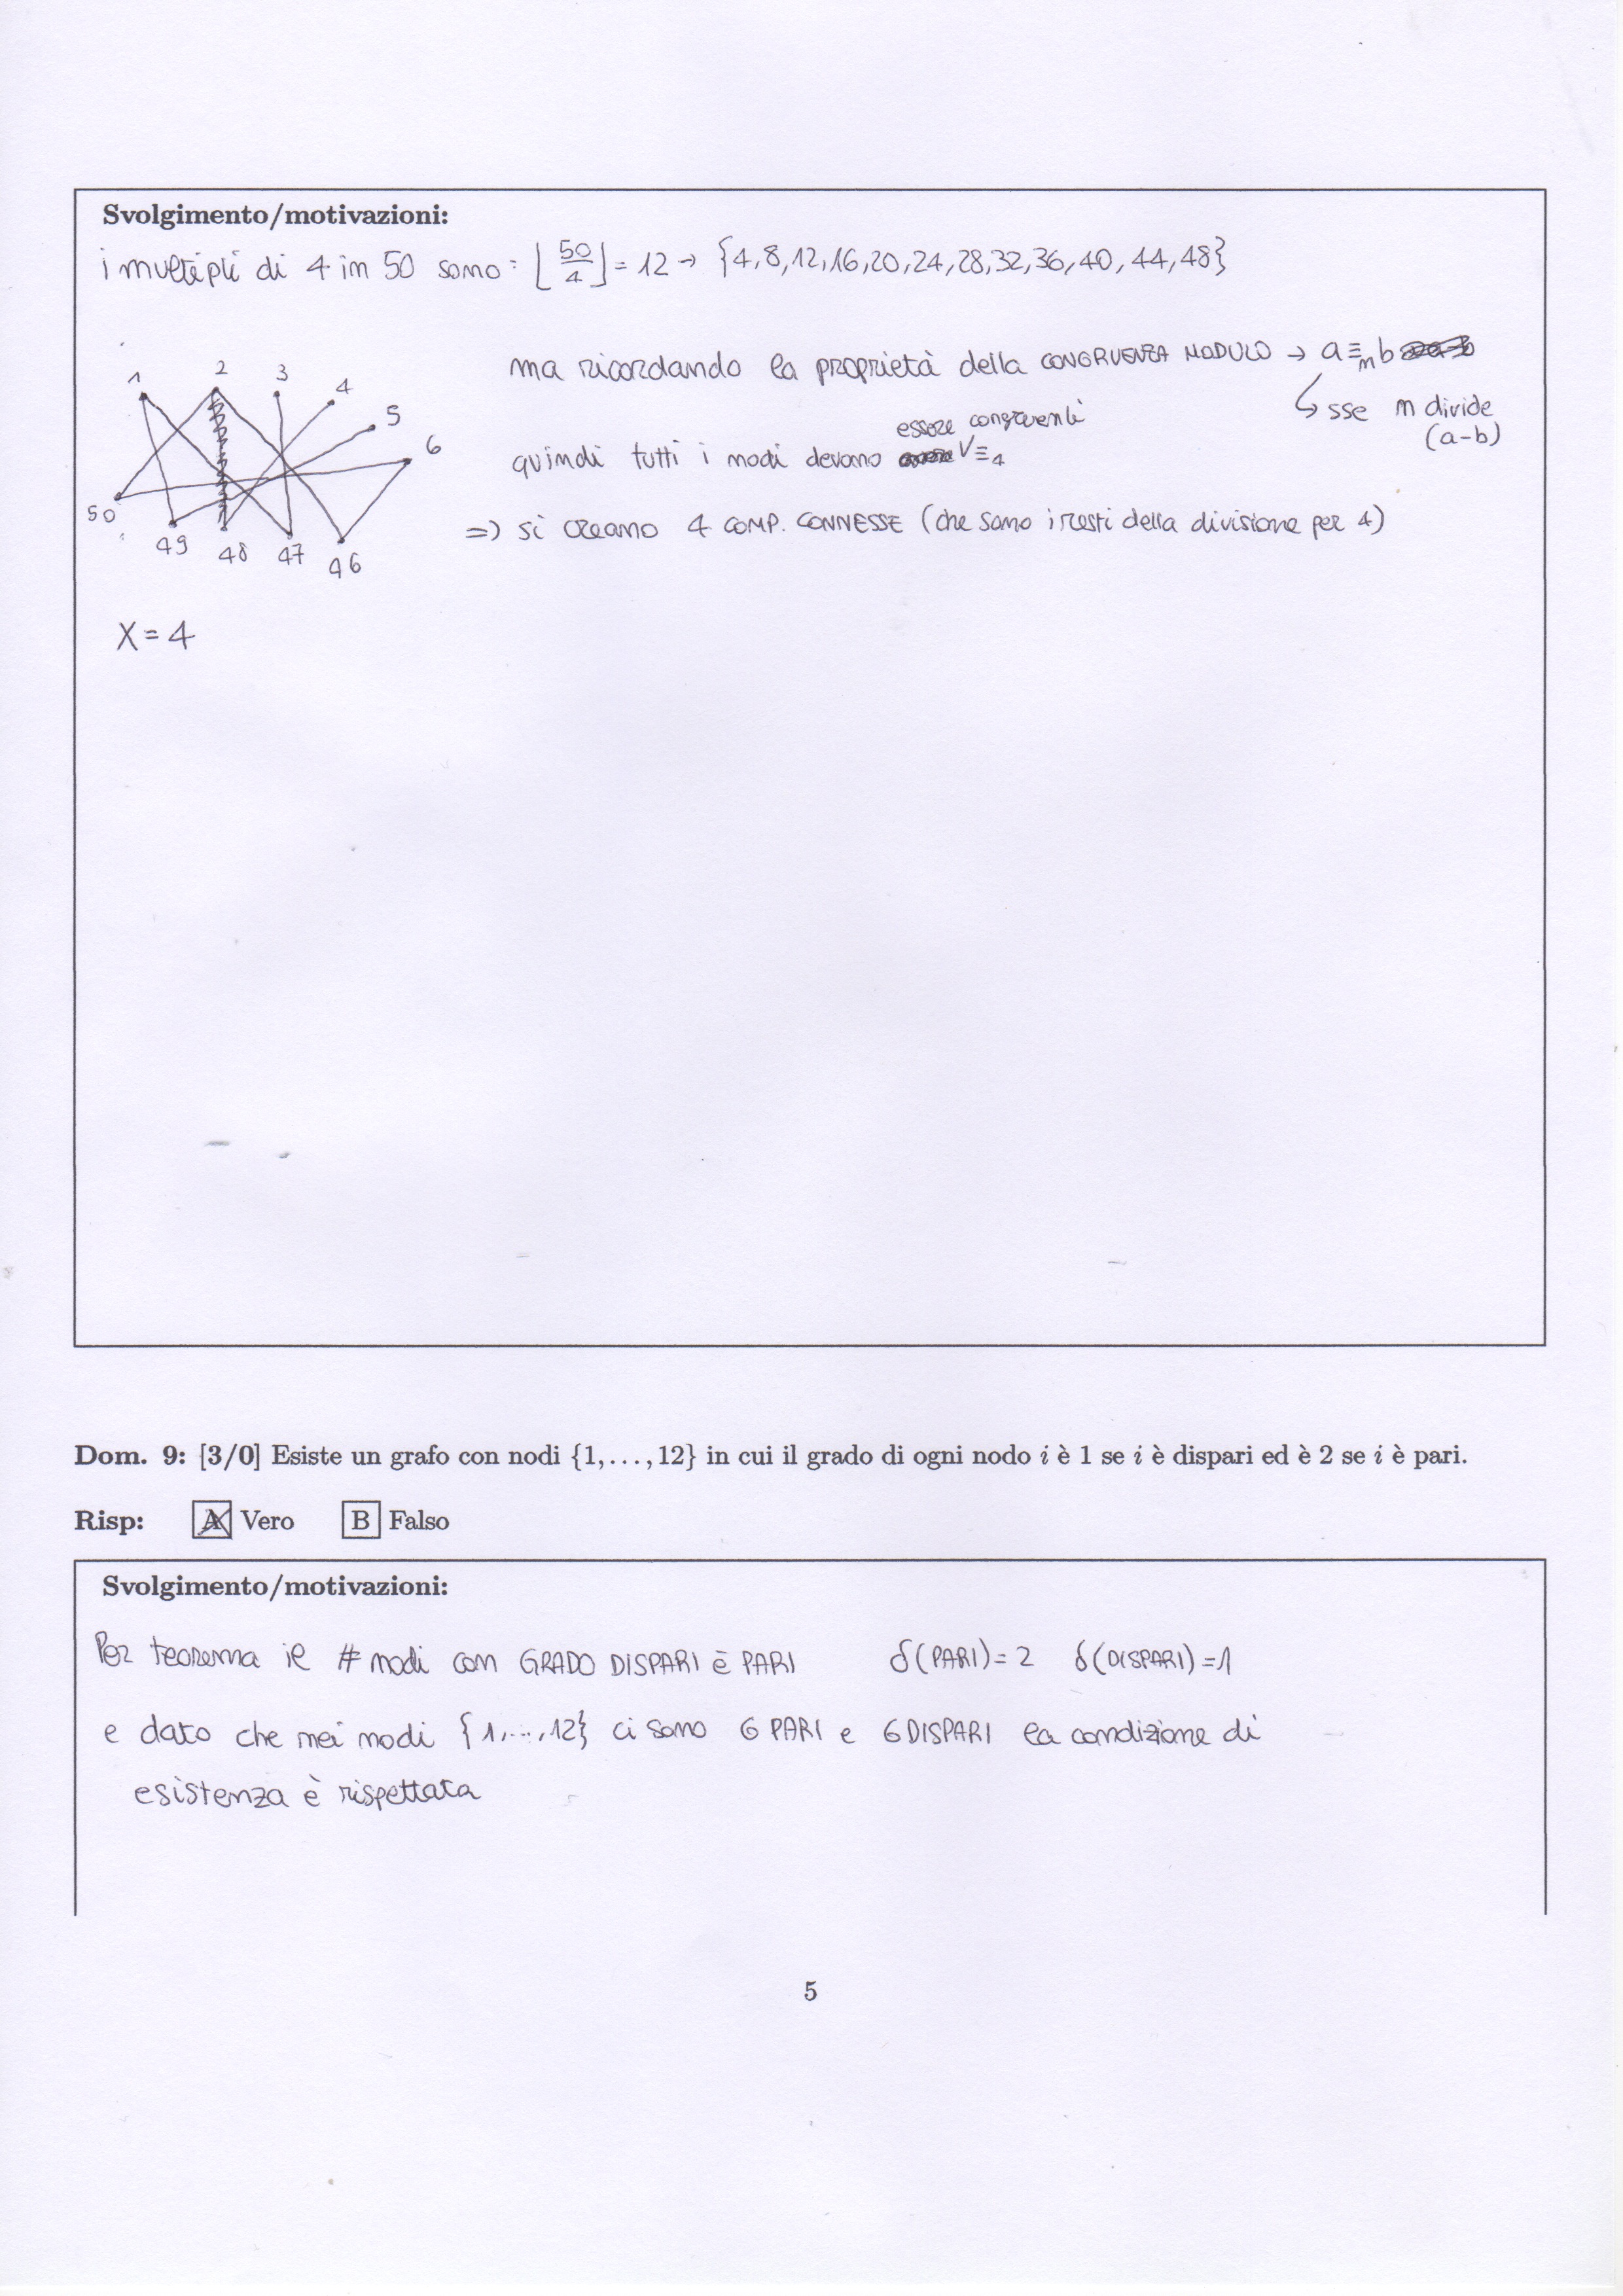 Svolgimento/motivazioni:
i multipli di 4 in 50 sono: ⌊50/4⌋ = 12 → {4,8,12,16,20,24,28,32,36,40,44,48}
ma ricordando la proprietà della CONGRUENZA MODULO → a ≡ₘ b
↳ sse m divide
(a-b)
1 2 3 4 5 6
50 49 48 47 46
essere congruenti
quindi tutti i nodi devono V≡₄
=> si creano 4 COMP. CONNESSE (che sono i resti della divisione per 4)
X = 4
Dom. 9: [3/0] Esiste un grafo con nodi {1,...,12} in cui il grado di ogni nodo i è 1 se i è dispari ed è 2 se i è pari.
Risp: A Vero B Falso
Svolgimento/motivazioni:
Per teorema il # nodi con GRADO DISPARI è PARI δ(PARI) = 2 δ(DISPARI) = 1
e dato che nei nodi {1,...,12} ci sono 6 PARI e 6 DISPARI la condizione di
esistenza è rispettata
5